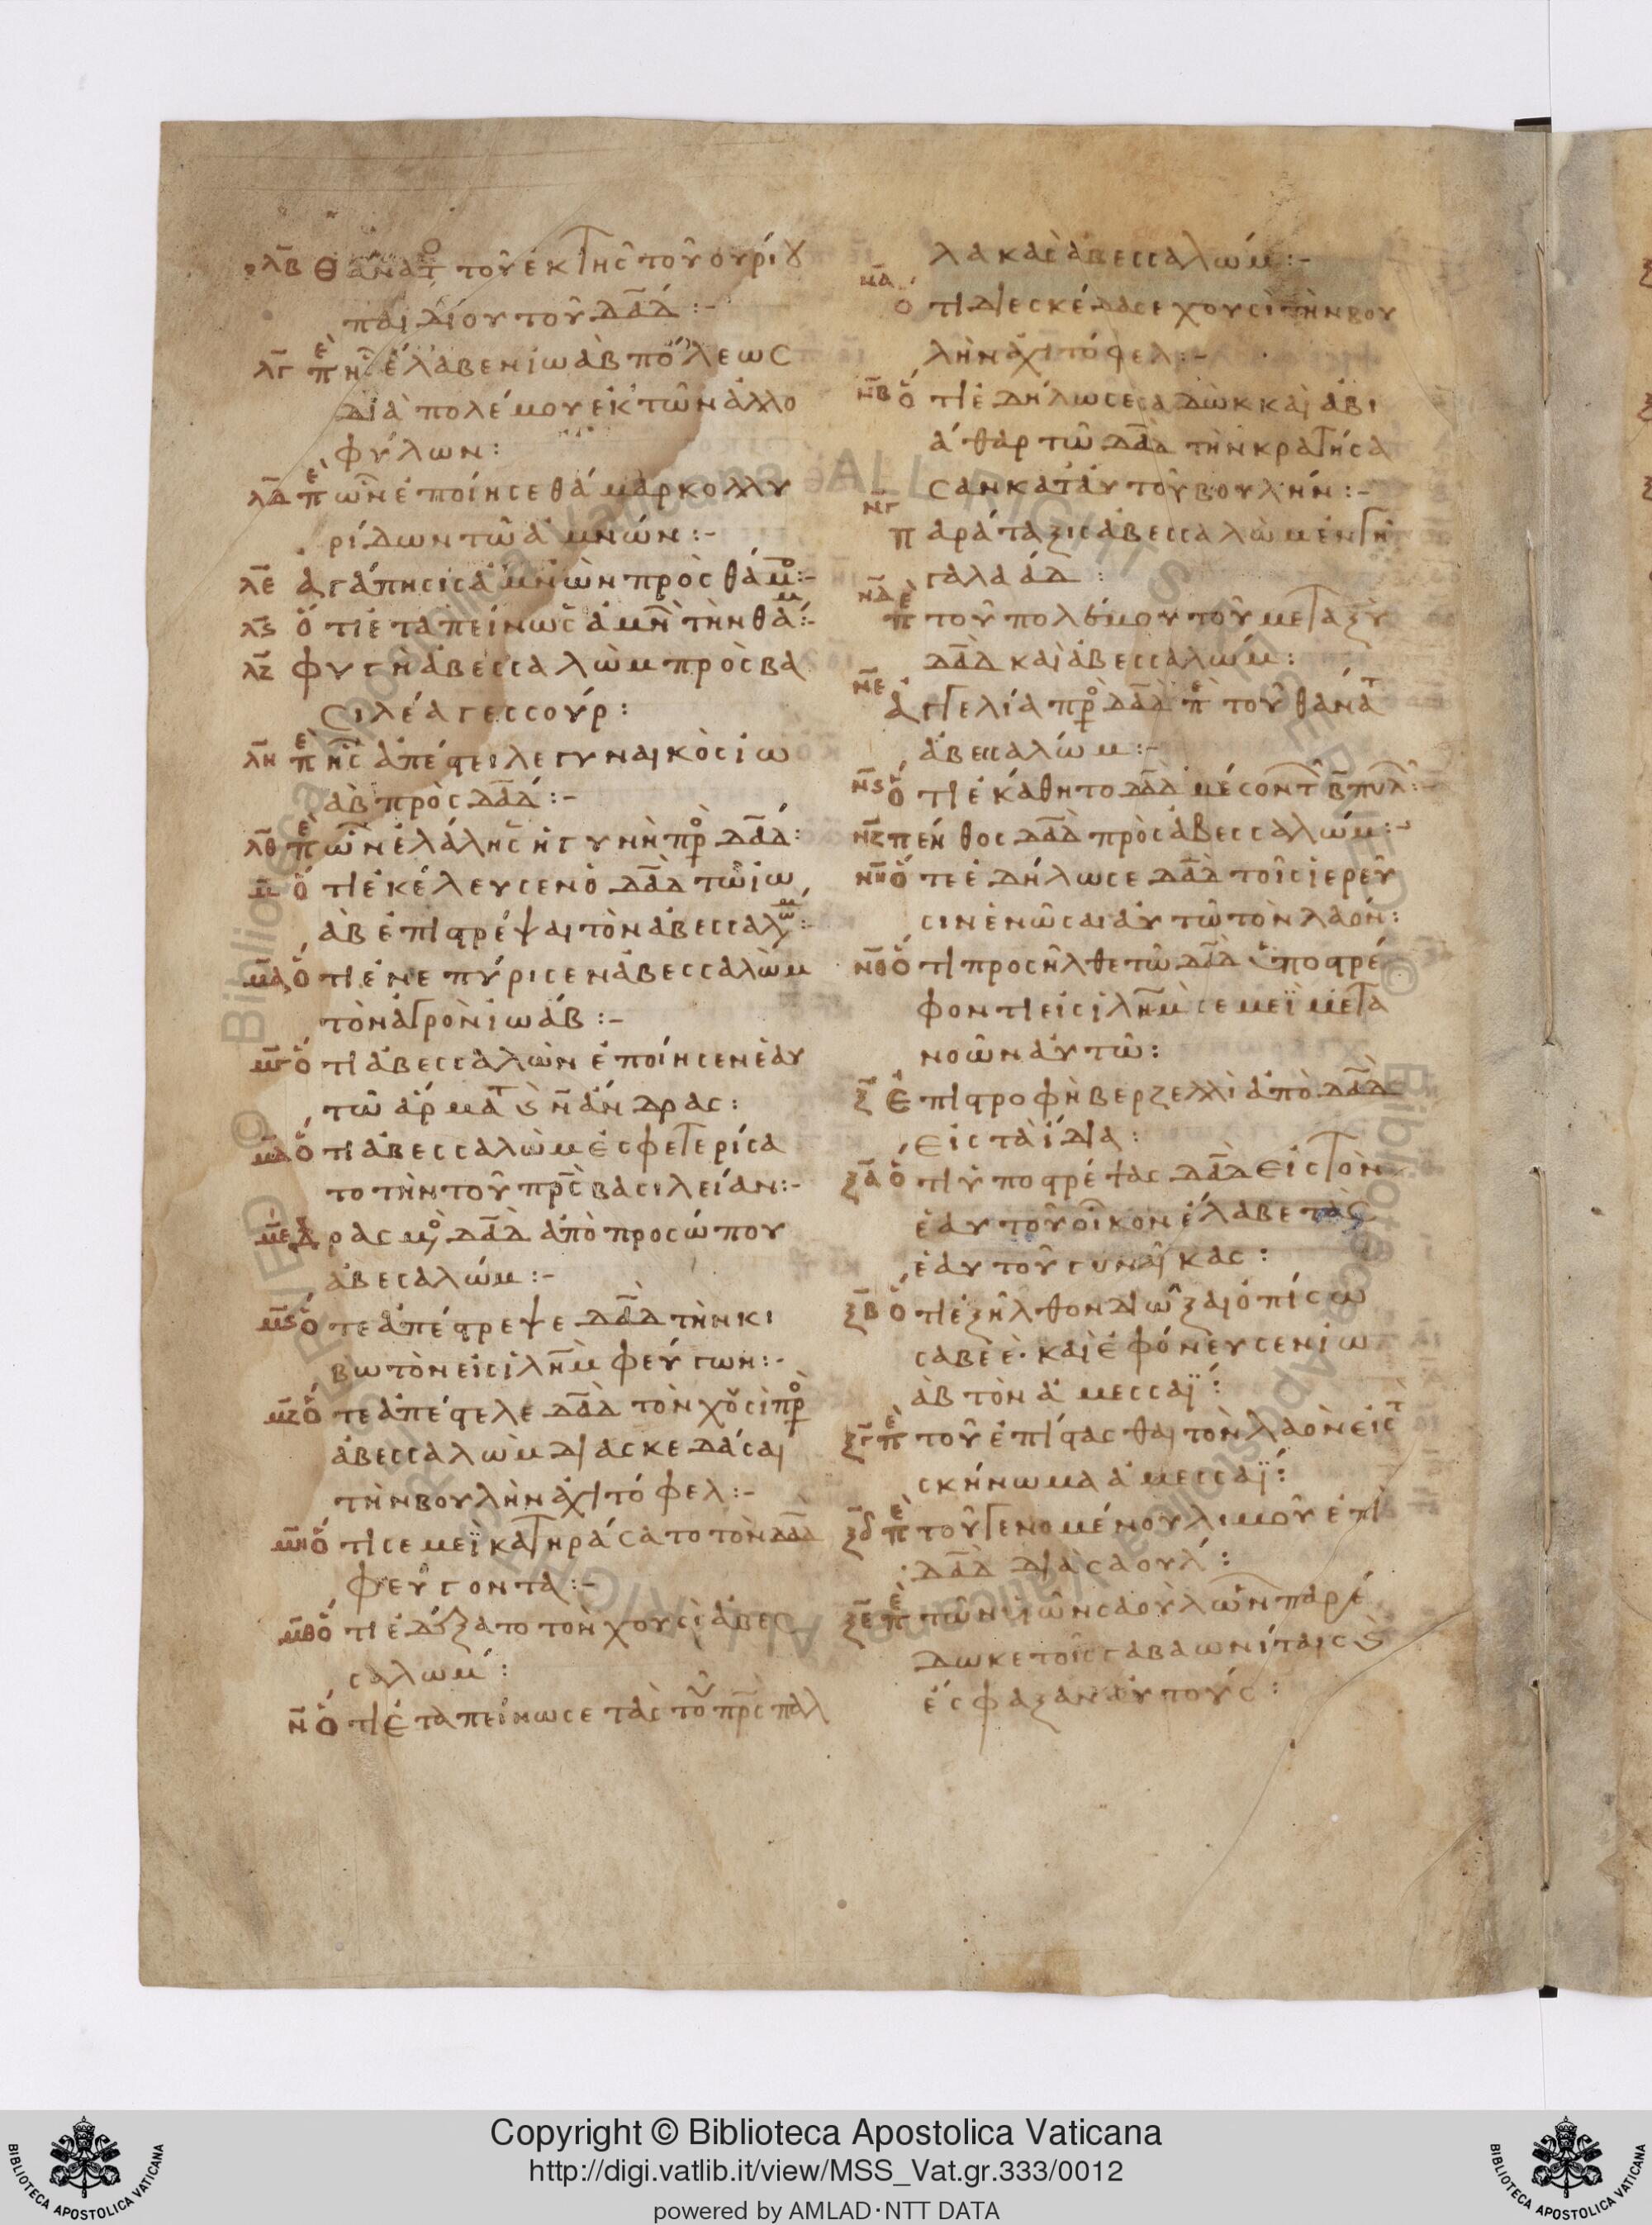 λβ θάνατο τοῦ ἐκ τῆς τοῦ ουρίου
παιδίου τοῦ δαδ :-
λγ πε ἧς ἔλαβεν ἰωὰβ πόλεως
διὰ πολέμου ἐκ τῶν ἀλλο
φύλων :
λδ πε ὧν ἐποίησε θάμαρ κολλυ
ρίδων τῶ ἀμνών :-
λε ἀγάπησις ἀμνὼν πρὸς θάμ :-
λς ὅτι ἐταπείνως ἀμν τὴν θάμ :-
λζ φυγὴ ἀβεσσαλὼμ πρὸς βα
σιλέα γεσσούρ :
λη πε ἧς ἀπέστειλε γυναικὸς ἰω
ὰβ πρὸς δαδ :-
λθ πε ὧν ἐλάλης ἡ γυνὴ πρ δαδ :
μ ὅτι ἐκέλευσεν ὁ δαδ τῶ ἰω
ὰβ ἐπιστρέψαι τὸν ἀβεσσαλωμ :-
μα ὅτι ἐνεπύρισεν ἀβεσσαλὼμ
τὸν ἀγρὸν ἰωάβ :-
μγ ὅτι ἀβεσσαλὼν ἐποίησεν ἑαυ
τῶ ἁρματ ϗ ν ἄνδρας :
μδ ὅτι ἀβεσσαλὼμ ἐσφετερίσα
το τὴν τοῦ πρς βασιλείαν :-
με δρασμὸ δαδ ἀπὸ προσώπου
ἀβεσαλώμ :-
μς ὅτε ἀπέστρεψε δαδ τὴν κι
βωτὸν εἰς ιλημ φεύγων :-
μζ ὅτε ἀπέστελε δαδ τὸν χουσὶ πρ
ἀβεσσαλὼμ διασκεδάσαι
τὴν βουλὴν ἀχιτόφελ :-
μη ὅτι σεμεϊ κατηράσατο τὸν δαδ
φεύγοντα :-
μθ ὅτι ἐδέξατο τὸν χουσὶ ἀβεσ
σαλωμ :
ν ὅτι ἐταπείνωσε τὰς τοῦ πρς παλ
λακὰς ἀβεσσαλώμ :-
να ὅτι διεσκέδασε χουσὶ τὴν βου
λὴν ἀχιτόφελ :-
νβ ὅτι ἐδήλωσε σαδὼκ καὶ ἀβι
άθαρ τῶ δαδ τὴν κρατήσα
σαν κατ' αὐτοῦ βουλήν :-
νγ παράταξις ἀβεσσαλὼμ ἐν γῆ
γαλαάδ :
νδ πε τοῦ πολέμου τοῦ μεταξὺ
δαδ καὶ ἀβεσσαλώμ :
νε ἀγγελία πρ δαδ πε τοῦ θανάτ
ἀβεσσαλώμ :-
νς ὅτι ἐκάθητο δαδ μέσον τ β πυλ :-
νζ πένθος δαδ πρὸς ἀβεσσαλώμ :-
νη ὅτε ἐδήλωσε δαδ τοῖς ἱερεῦ
σιν ἑνῶσαι αὐτῶ τὸν λαόν :
νθ ὅτι προσῆλθε τῶ δαδ ὑποστρέ
φοντι εἰς ιλημ σεμεϊ μετα
νοῶν αὐτῶ :
ξ ἐπιστροφὴ βερζελλὶ ἀπὸ δαδ
εἰς τὰ ἴδια :
ξα ὅτι ὑποστρέψας δαδ εἰς τὸν
ἑαυτοῦ οἶκον ἔλαβε τὰς
ἑαυτοῦ γυναῖκας :
ξβ ὅτι ἐξῆλθον διῶξαι ὀπίσω
σαβεὲ · καὶ ἐφόνευσεν ἰω
ὰβ τὸν ἀμεσσαΐ :
ξγ πε τοῦ ἐπιστασθαι τὸν λαὸν εἰς τ
σκήνωμα ἀμεσσαΐ :
ξδ πε τοῦ γενομένου λιμοῦ ἐπὶ
δαδ διὰ σαουλ :
ξε πε τῶν υἱῶν σαοὺλ ὧν παρέ
δωκε τοῖς γαβαωνίταις ϗ
ἔσφαξαν αὐτούς :
Copyright © Biblioteca Apostolica Vaticana
http://digi.vatlib.it/view/MSS_Vat.gr.333/0012
powered by AMLAD·NTT DATA
BIBLIOTECA APOSTOLICA VATICANA
BIBLIOTECA APOSTOLICA VATICANA